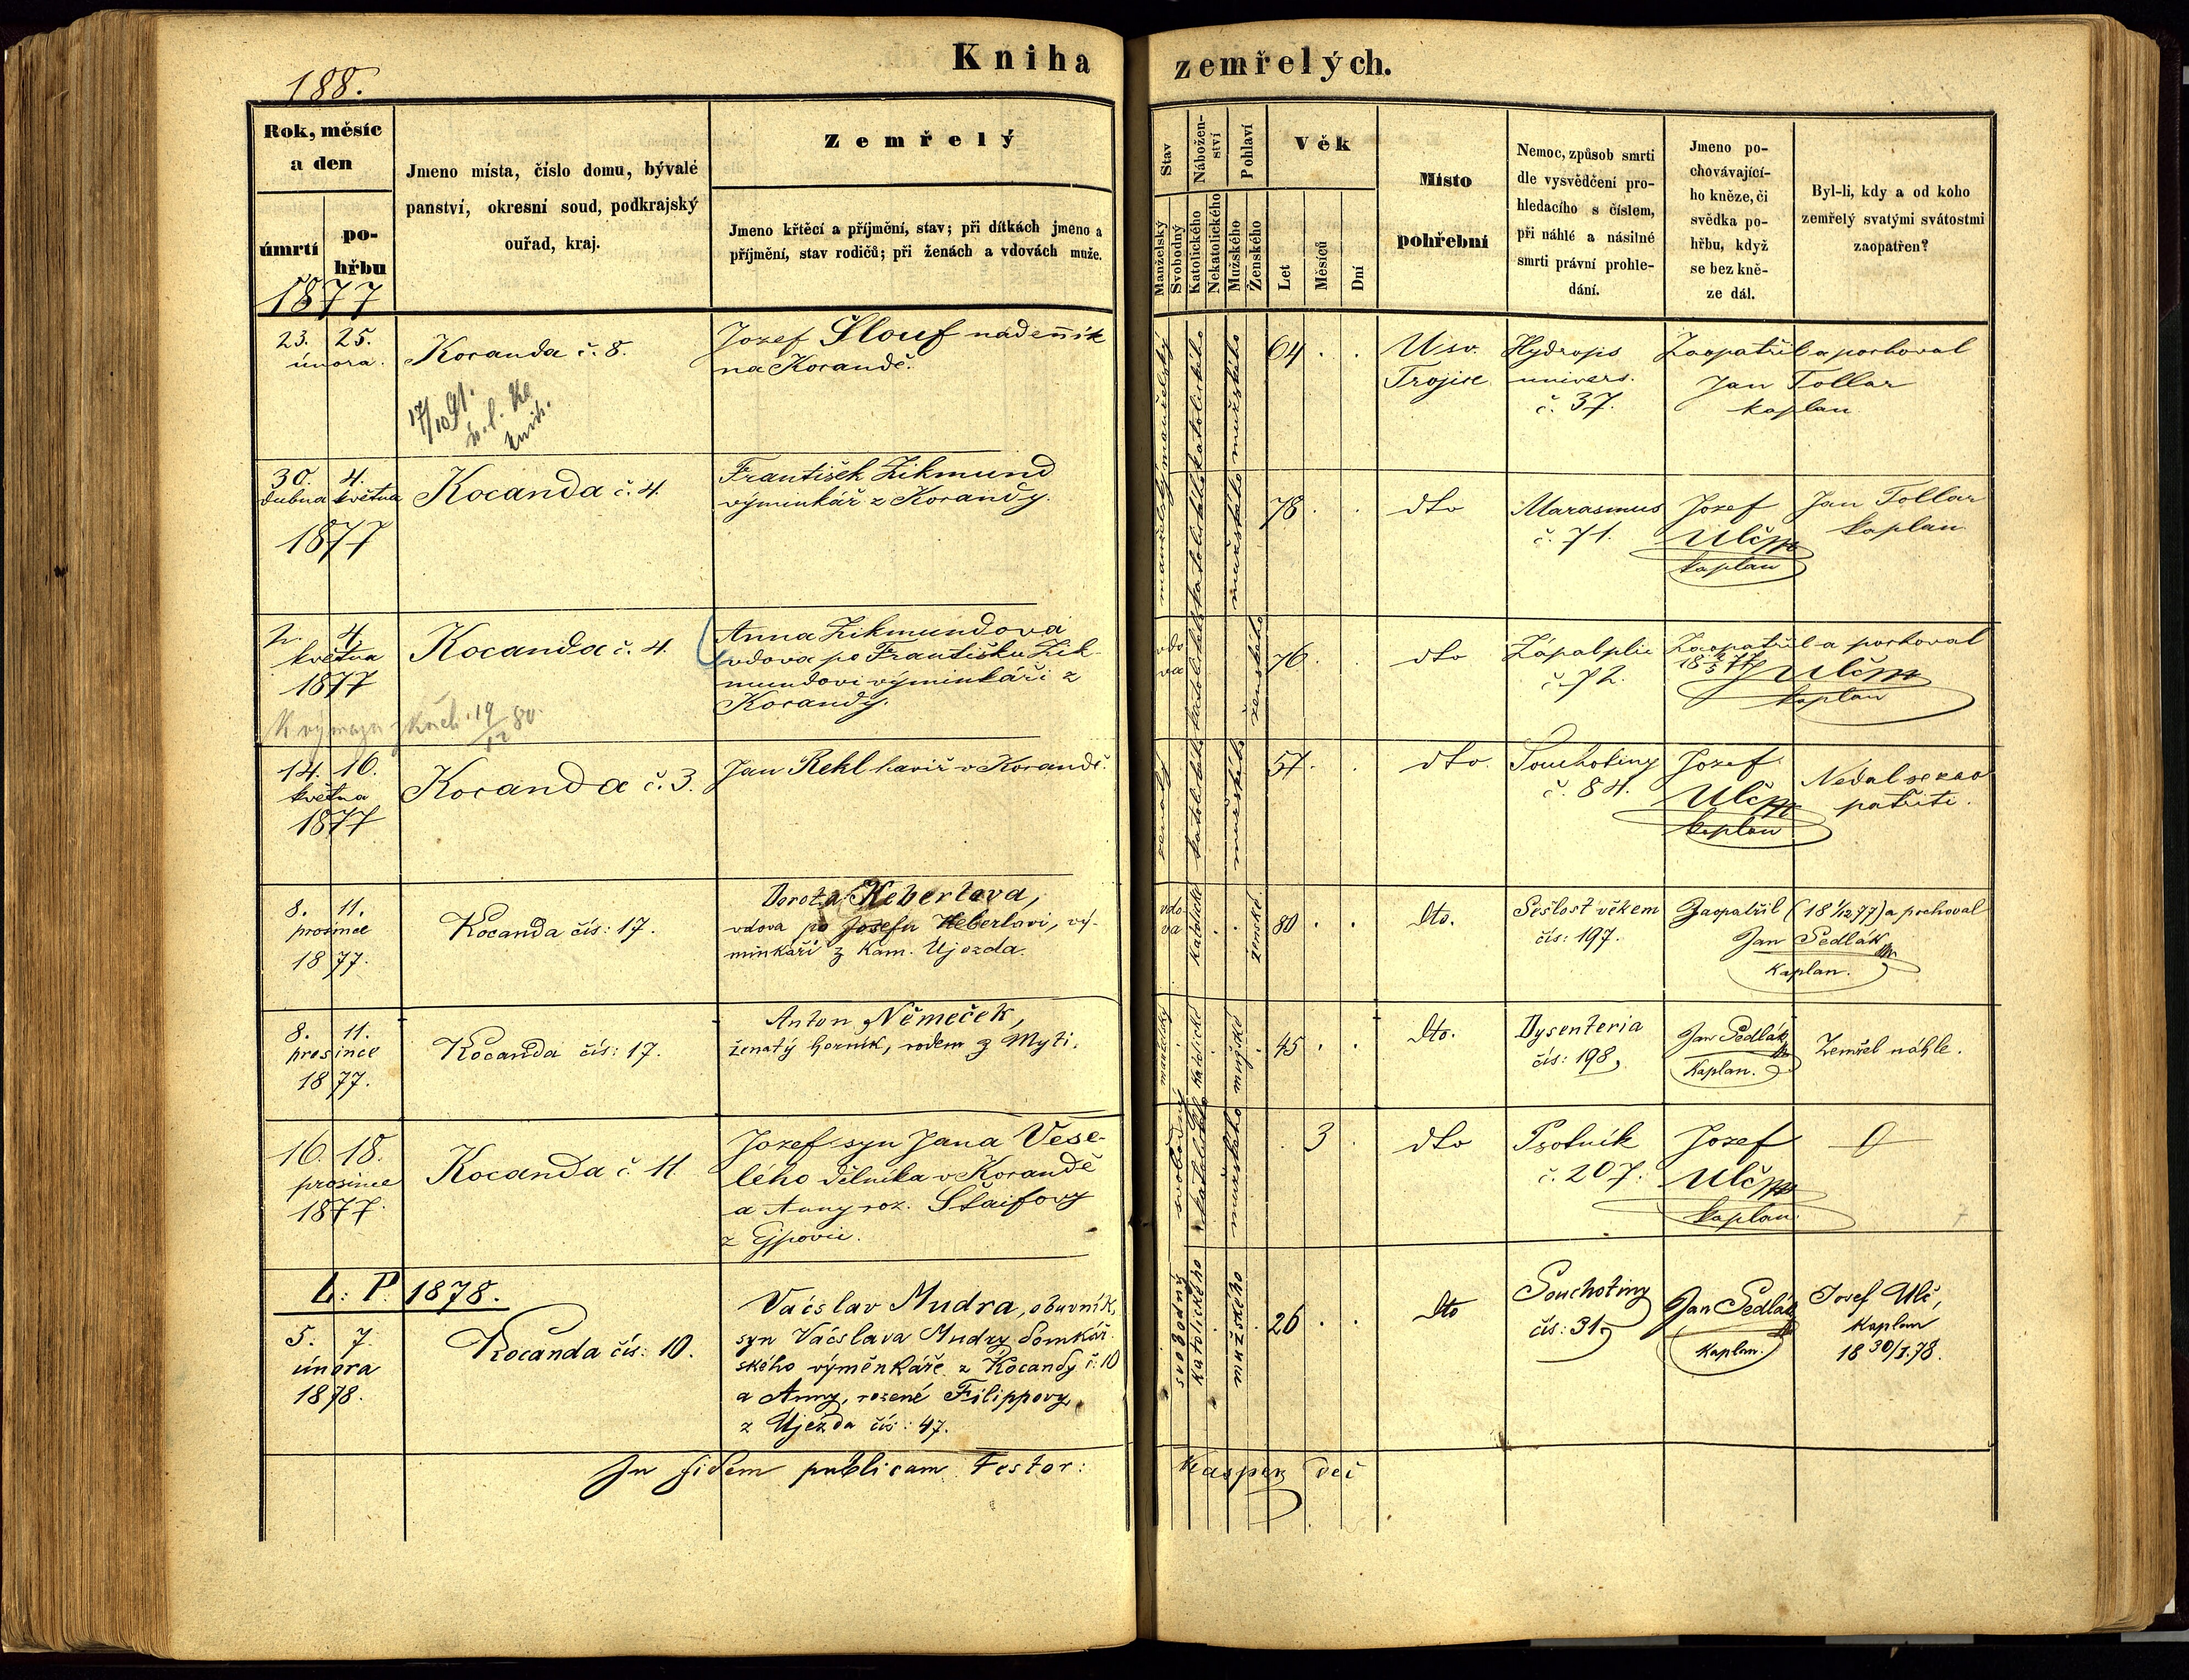 188.
Kniha zemřelých.
Rok, měsíc
a den
úmrtí
po-
hřbu
1877
Jmeno místa, číslo domu, bývalé
panství, okresní soud, podkrajský
ouřad, kraj.
Zemřelý
Jmeno křtěcí a příjmění, stav; při dítkách jmeno a
příjmění, stav rodičů; při ženách a vdovách muže.
Stav
Manželský
Svobodný
Nábožen-
ství
Katolického
Nekatolického
Pohlaví
Mužského
Ženského
Věk
Let
Měsíců
Dní
Místo
pohřební
Nemoc, způsob smrti
dle vysvědčení pro-
hledacího s číslem,
při náhlé a násilné
smrti právní prohle-
dání.
Jmeno po-
chovávající-
ho kněze, či
svědka po-
hřbu, když
se bez kně-
ze dál.
Byl-li, kdy a od koho
zemřelý svatými svátostmi
zaopatřen?
23. 25.
února.
Kocanda č. 8.
17/10 91.
Jozef Šlouf nadenník
na Kocandě.
manželský
katolického
mužského
64 . .
U sv.
Trojice
Hydrops
univers.
č. 37.
Zaopatřil a pochoval
Jan Tollar
kaplan
30. 4.
dubna května
1877
Kocanda č. 4.
František Zikmund
výminkář z Kocandy.
manželský
katolického
mužského
78 . .
dto
Marasmus
č. 71.
Jozef
Ulč
kaplan
Jan Tollar
kaplan
2. 4.
května
1877
Kocanda č. 4.
Anna Zikmundova
vdova po Františku Zik-
mundovi výminkáři z
Kocandy.
vdo
va
katolického
ženského
76 . .
dto
Zápal plic
č. 72.
Zaopatřil a pochoval
Ulč
kaplan
19/12 80.
14. 16.
května
1877
Kocanda č. 3.
Jan Rekl havíř v Kocandě.
ženatý
katolického
mužského
57 . .
dto.
Souchotiny
č. 84.
Jozef
Ulč
kaplan
Nedal se zao
patřiti.
8. 11.
prosince
1877.
Kocanda čís: 17.
Dorota Heberlova,
vdova po Josefu Heberlovi, vý-
minkáři z Kam. Ujezda.
vdo-
va
katolické
ženské
80 . .
dto.
Sešlost věkem
čís: 197.
Zaopatřil (18 1/12 77) a pochoval
Jan Sedlák
kaplan.
8. 11.
prosince
1877.
Kocanda čís: 17.
Anton Němeček,
ženatý horník, rodem z Myti.
manželský
katolické
mužské
45 . .
dto.
Dysenteria
čís: 198,
Jan Sedlák
Kaplan.
Zemřel náhle.
16. 18.
prosince
1877.
Kocanda č. 11.
Jozef syn Jana Vese-
lého dělníka v Kocandě
a Anny roz. Štaifovy
z Ejpovic.
svobodný
katolického
mužského
. 3 .
dto
Psotník
č. 207.
Jozef
Ulč
kaplan
L: P. 1878.
5. 7.
února
1878.
Kocanda čís: 10.
Vácslav Mudra, obuvník,
syn Vácslava Mudry domkář-
ského výměnkáře z Kocandy č. 10
a Anny, rozené Filippovy
z Ujezda čís: 47.
svobodný
katolického
mužského
26 . .
dto
Souchotiny
čís: 31.
Jan Sedlák
Kaplan.
Josef Ulč,
Kaplan
18 30/1.78.
In fidem publicam Testor: